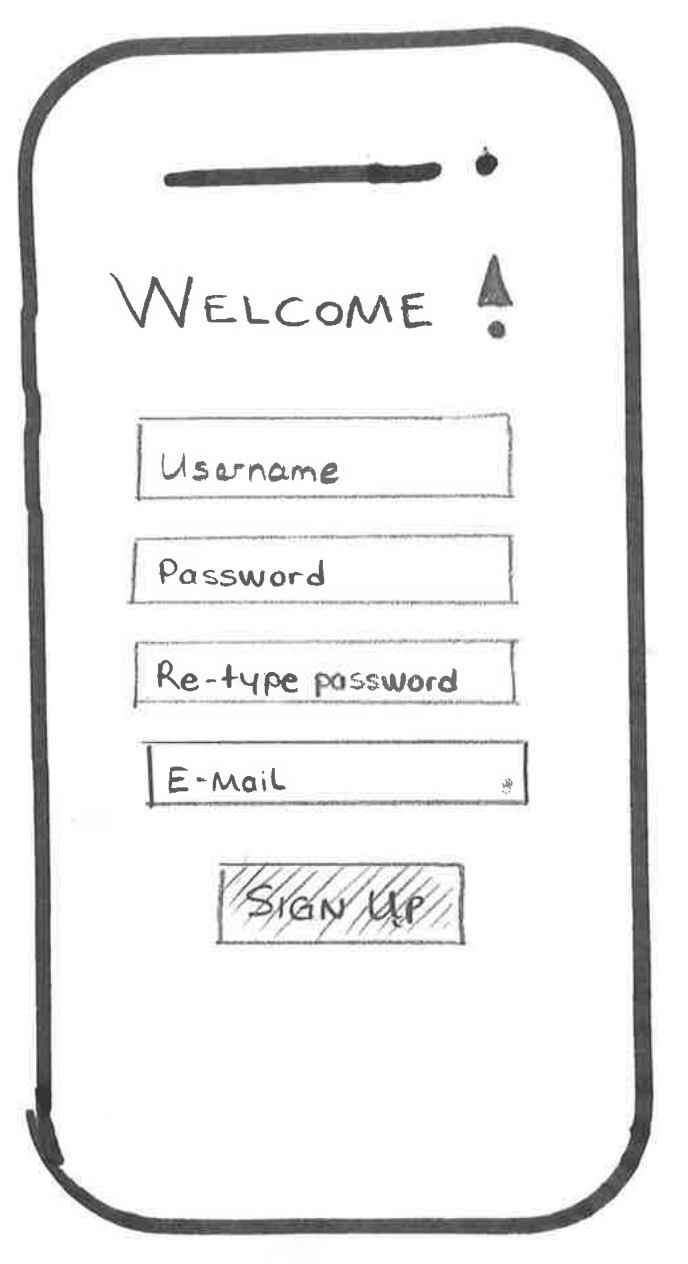 WELCOME !
Username
Password
Re-type password
E-Mail
SIGN UP